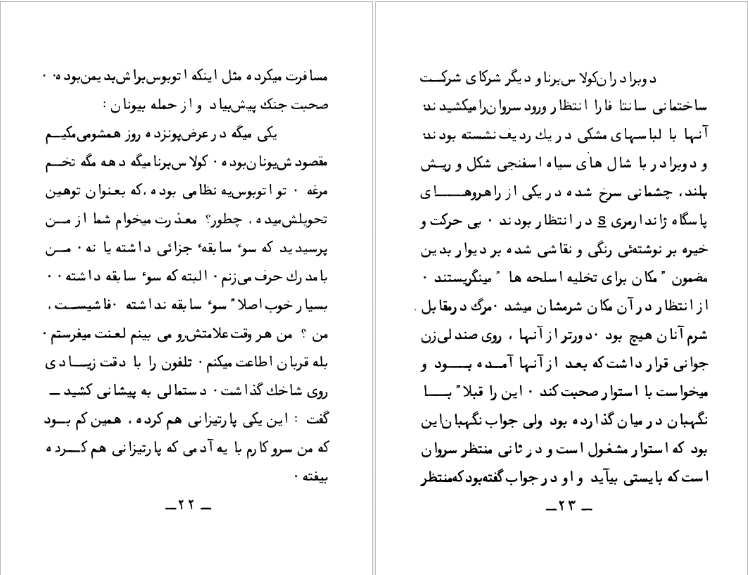 مسافرت میکرده مثل اینکه اتوبوس‌براش‌بدیمن‌بوده۰۰
صحبت جنك پیش‌بیاد و از حمله بیونان :
یکی میگه در عرض‌پونزده روز همشومی‌مکیم
مقصودش‌یونان‌بوده۰ کولاس‌برنا‌میگه دهه مگه تخم
مرغه ۰ تو اتوبوس‌یه نظامی بوده ،که بعنوان توهین
تحویلش‌میده ، چطور؟ معذرت میخوام شما از من
پرسیدید که سوء سابقهٔ جزائی داشته یا نه۰ من
بامدرك حرف می‌زنم۰ البته که سوء سابقه داشته۰۰
بسیار خوب اصلا" سوء سابقه نداشته ۰فاشیست ،
من ؟ من هر وقت‌علامتش‌رو می بینم لعنت میفرستم۰
بله قربان اطاعت میکنم۰ تلفون را با دقت زیادی
روی شاخك گذاشت۰ دستمالی به پیشانی کشید ــ
گفت : این یکی پارتیزانی هم کرده ، همین کم بود
که من سرو کارم با یه آدمی که پارتیزانی هم کرده
بیفته ۰
ــ ۲۲ ــ
دوبرادران‌کولاس‌برناو دیگر شرکای شرکت
ساختمانی سانتا فارا انتظار ورود سروان‌رامیکشیدند؛
آنها با لباسهای مشکی در یك ردیف نشسته بودند؛
و دوبرادر با شال های سیاه اسفنجی شکل و ریش
بلند، چشمانی سرخ شده در یکی از راهروهای
پاسگاه ژاندارمری s در انتظار بودند ۰ بی حرکت و
خیره بر نوشته‌ئی رنگی و نقاشی شده بر دیوار بدین
مضمون " مکان برای تخلیه اسلحه ها " مینگریستند ۰
از انتظار در آن مکان شرمشان میشد ۰مرگ درمقابل
شرم آنان هیچ بود ۰دورتر از آنها ، روی صندلی‌زن
جوانی قرار داشت که بعد از آنها آمده بود و
میخواست با استوار صحبت کند ۰ این را قبلا" با
نگهبان در میان گذارده بود ولی جواب نگهبان‌این
بود که استوار مشغول است و در ثانی منتظر سروان
است که بایستی بیآید و او در جواب گفته‌بود‌که‌منتظر
ــ ۲۳ ــ